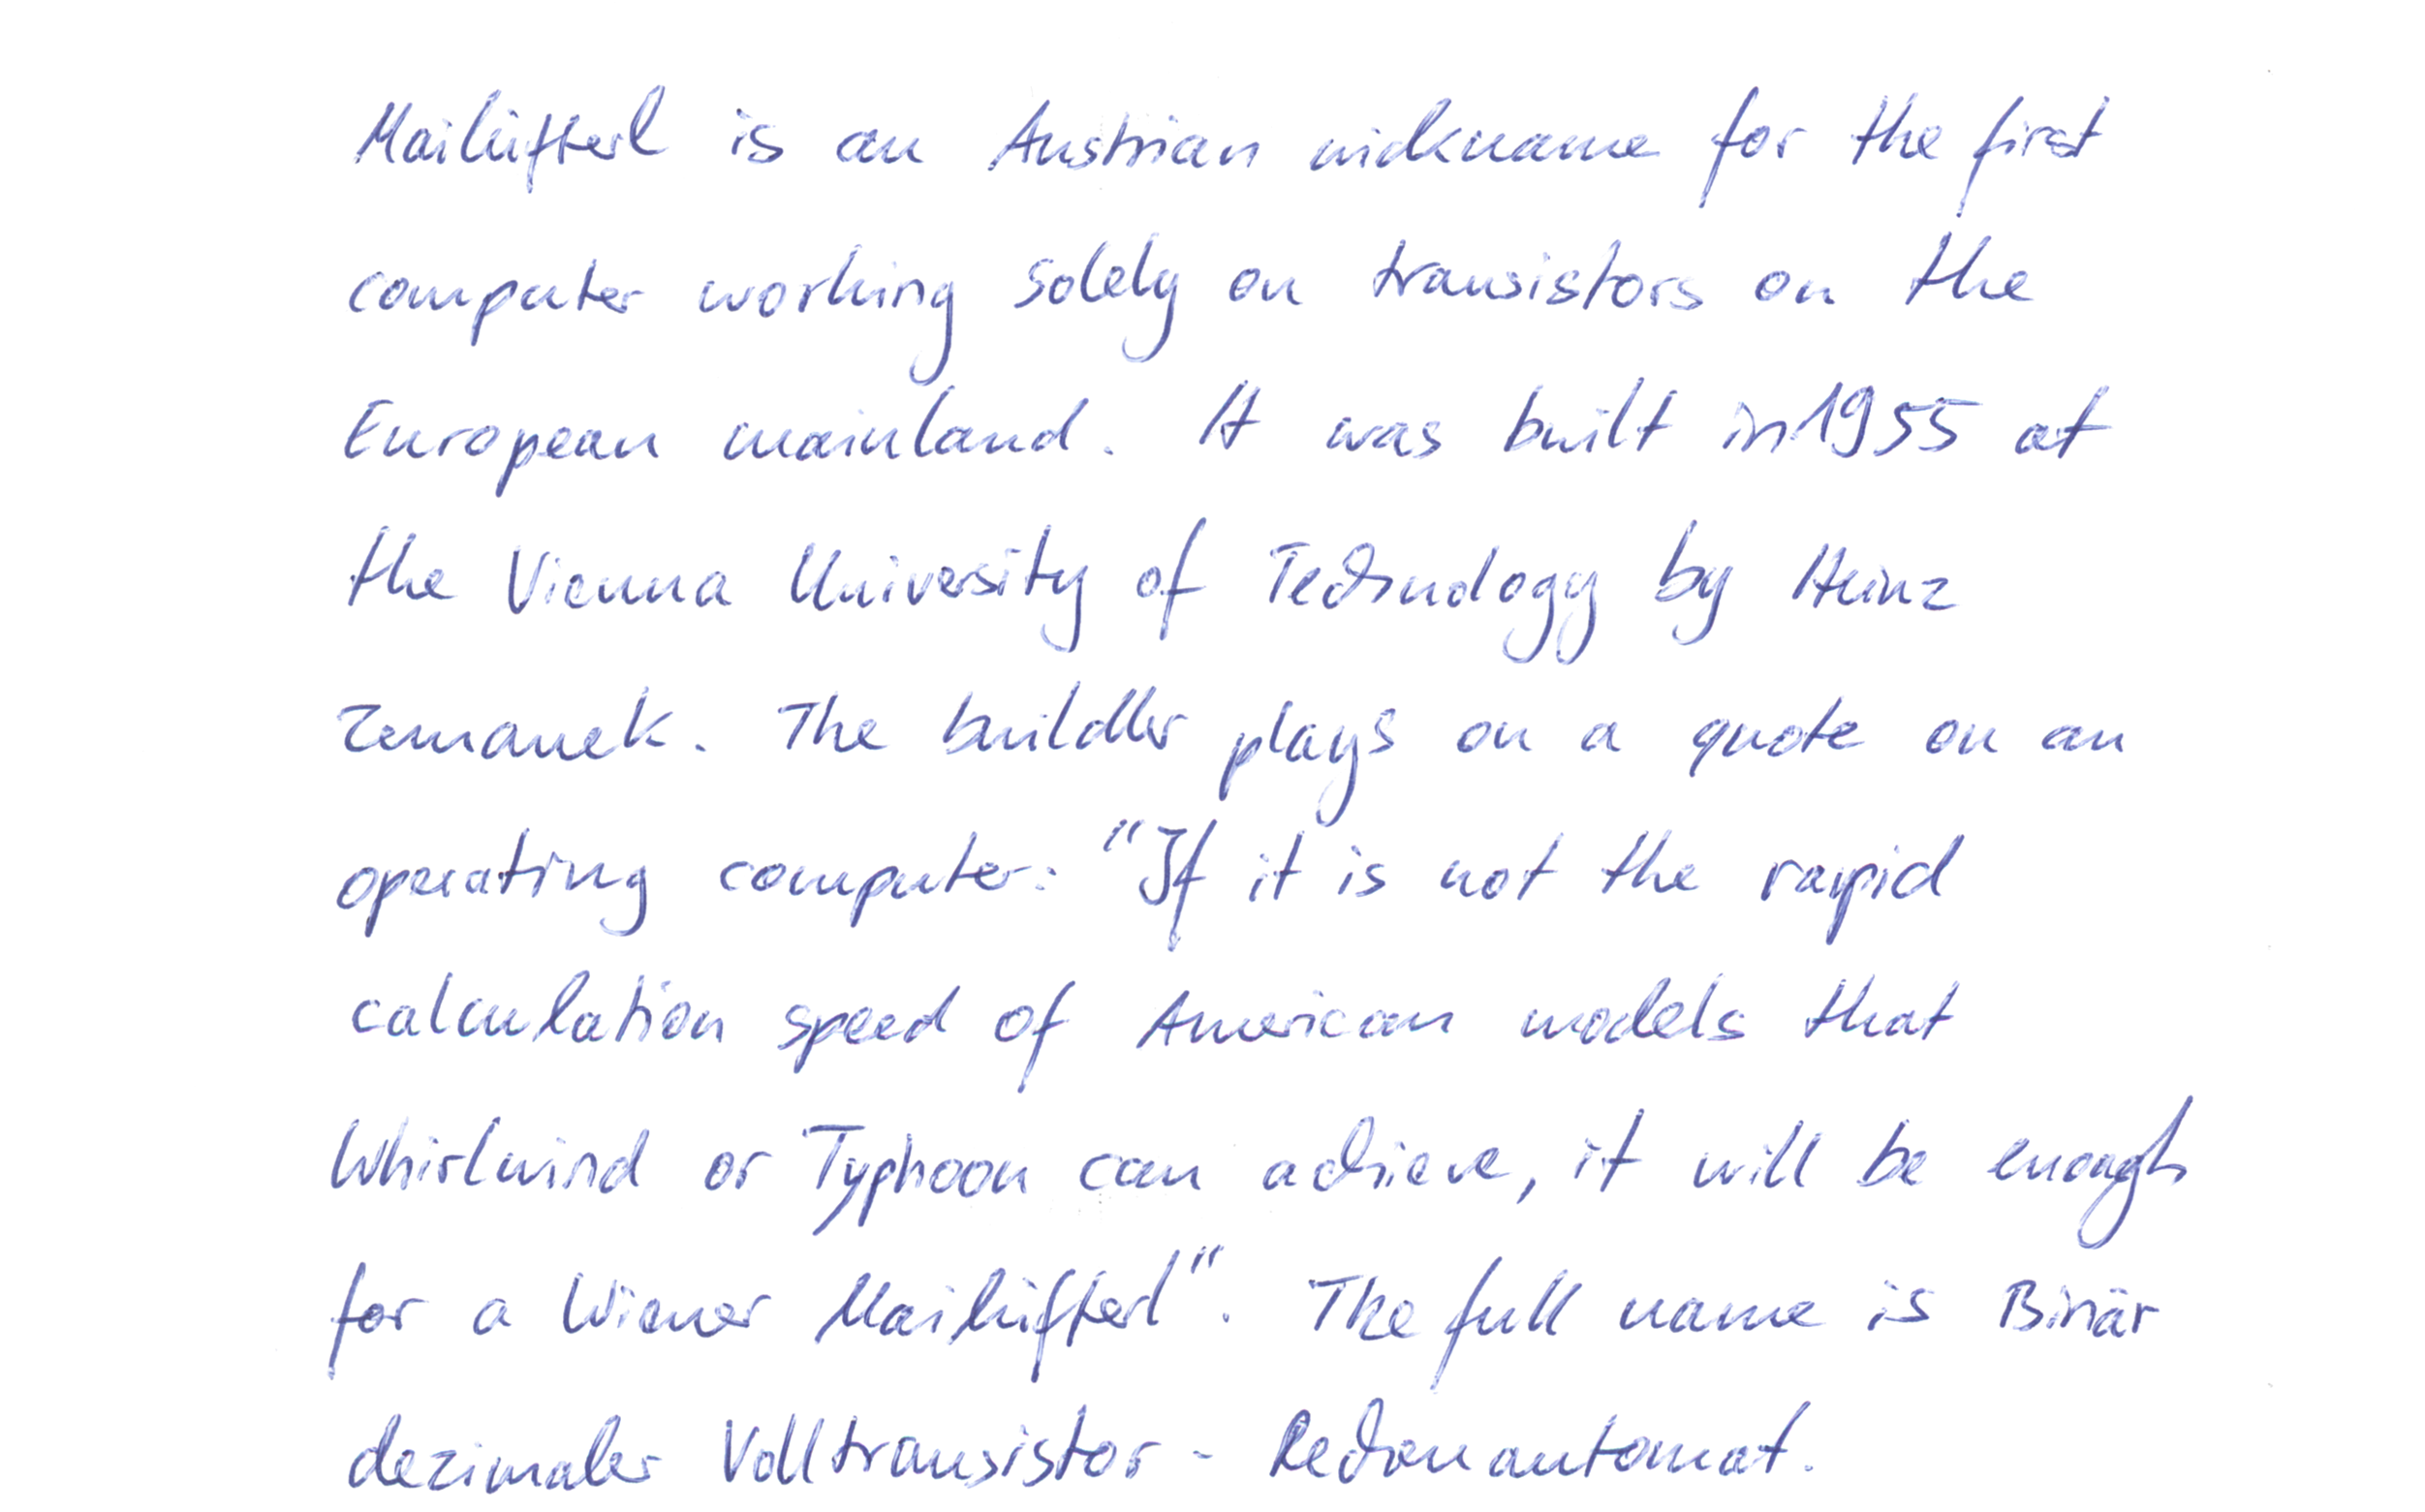 Mailüfterl is an Austrian nickname for the first
computer working solely on transistors on the
European mainland. It was built in 1955 at
the Vienna University of Technology by Heinz
Zemanek. The builder plays on a quote on an
operating computer: "If it is not the rapid
calculation speed of American models that
Whirlwind or Typhoon can achieve, it will be enough
for a Wiener Mailüfterl". The full name is Binär
dezimaler Volltransistor - Rechenautomat.